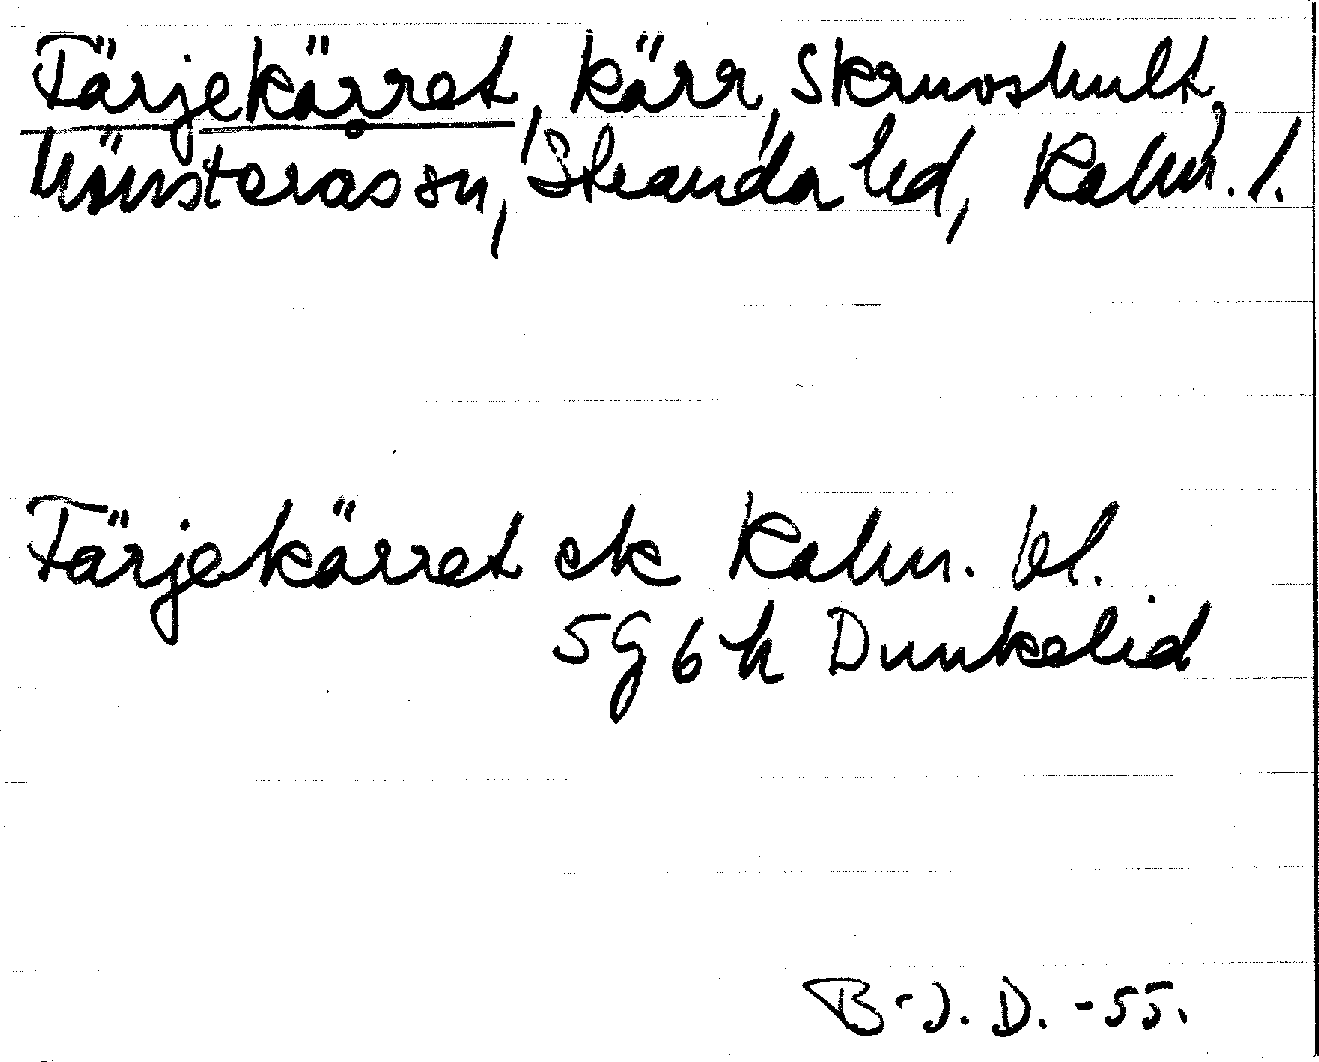 Färjekärret, kärr, Skruvshult,
Mönsterås sn, Stranda hd, Kalm. l.
Färjekärret ek Kalm. bl.
5G6h Dunkelid
B-J. D. -55.